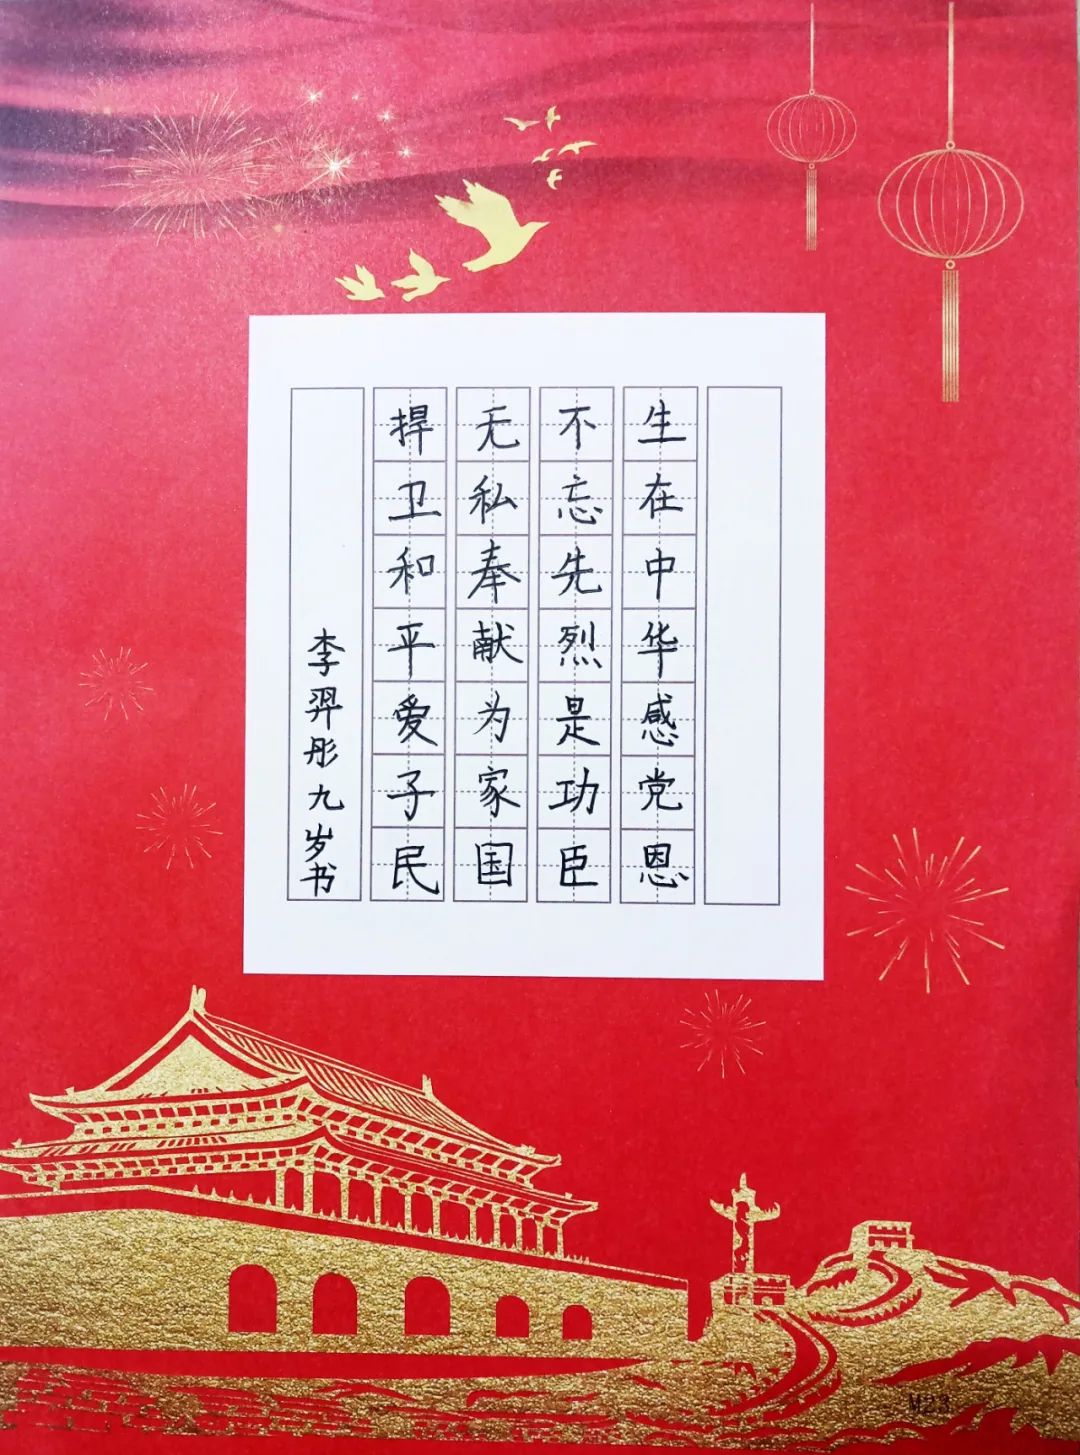 生在中华感党恩
不忘先烈是功臣
无私奉献为家国
捍卫和平爱子民
李羿彤九岁书
M23